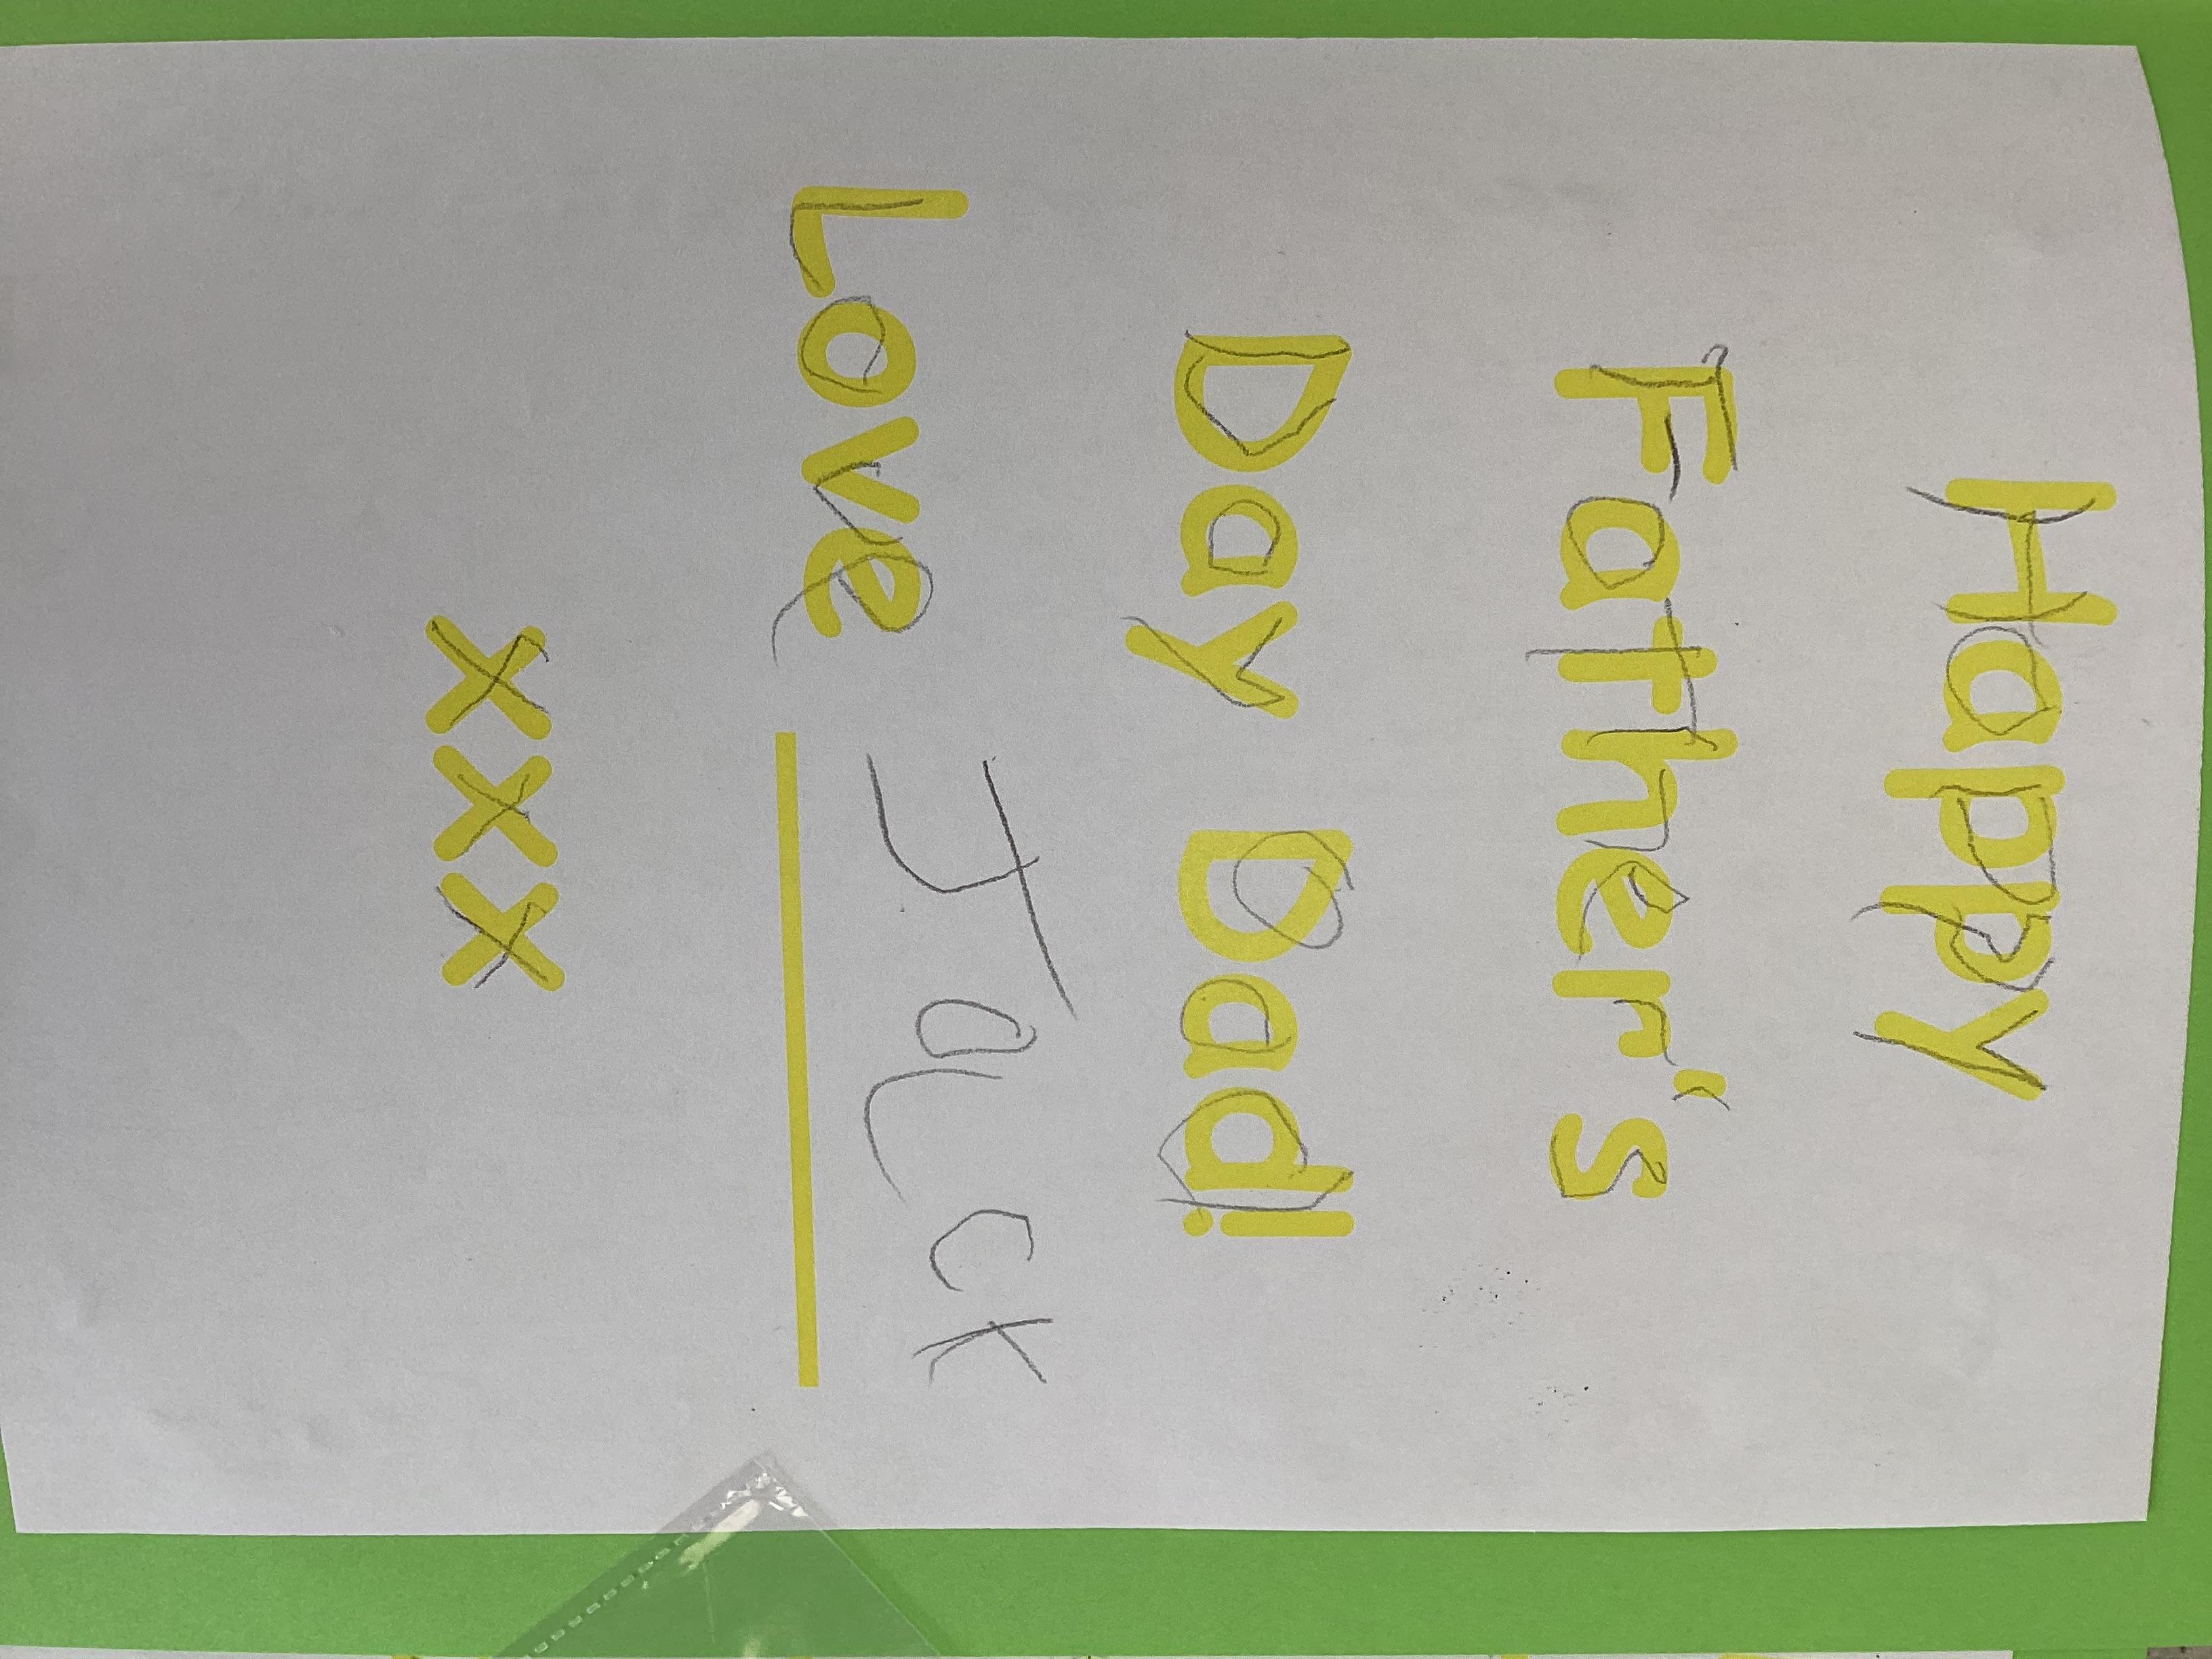 Happy
Father's
Day Dad!
Love Jack
xxx